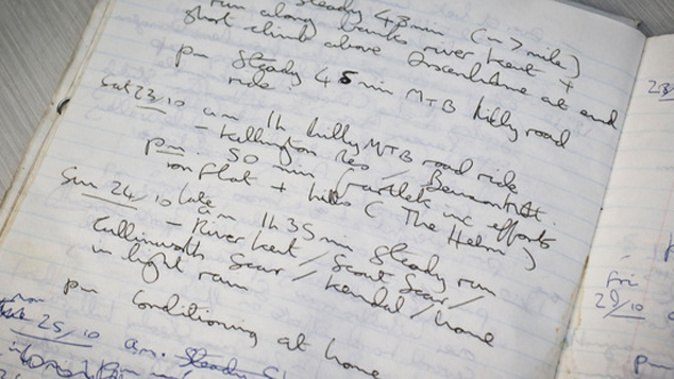 steady 48 min (~7 mile)
run along banks river Kent +
short climb above at end
pm steady 45 min MTB hilly road
ride.
Sat 23/10 am 1h hilly MTB road ride
- Killington Res /
pm 50 min fartlek inc efforts
on flat + hills ( The Helm )
Sun 24/10 late am 1h 35 min steady run
- River Kent / Scout Scar /
Scar / Kendal / home
in light rain
pm Conditioning at home
25/10 am. Steady
Fri
pm